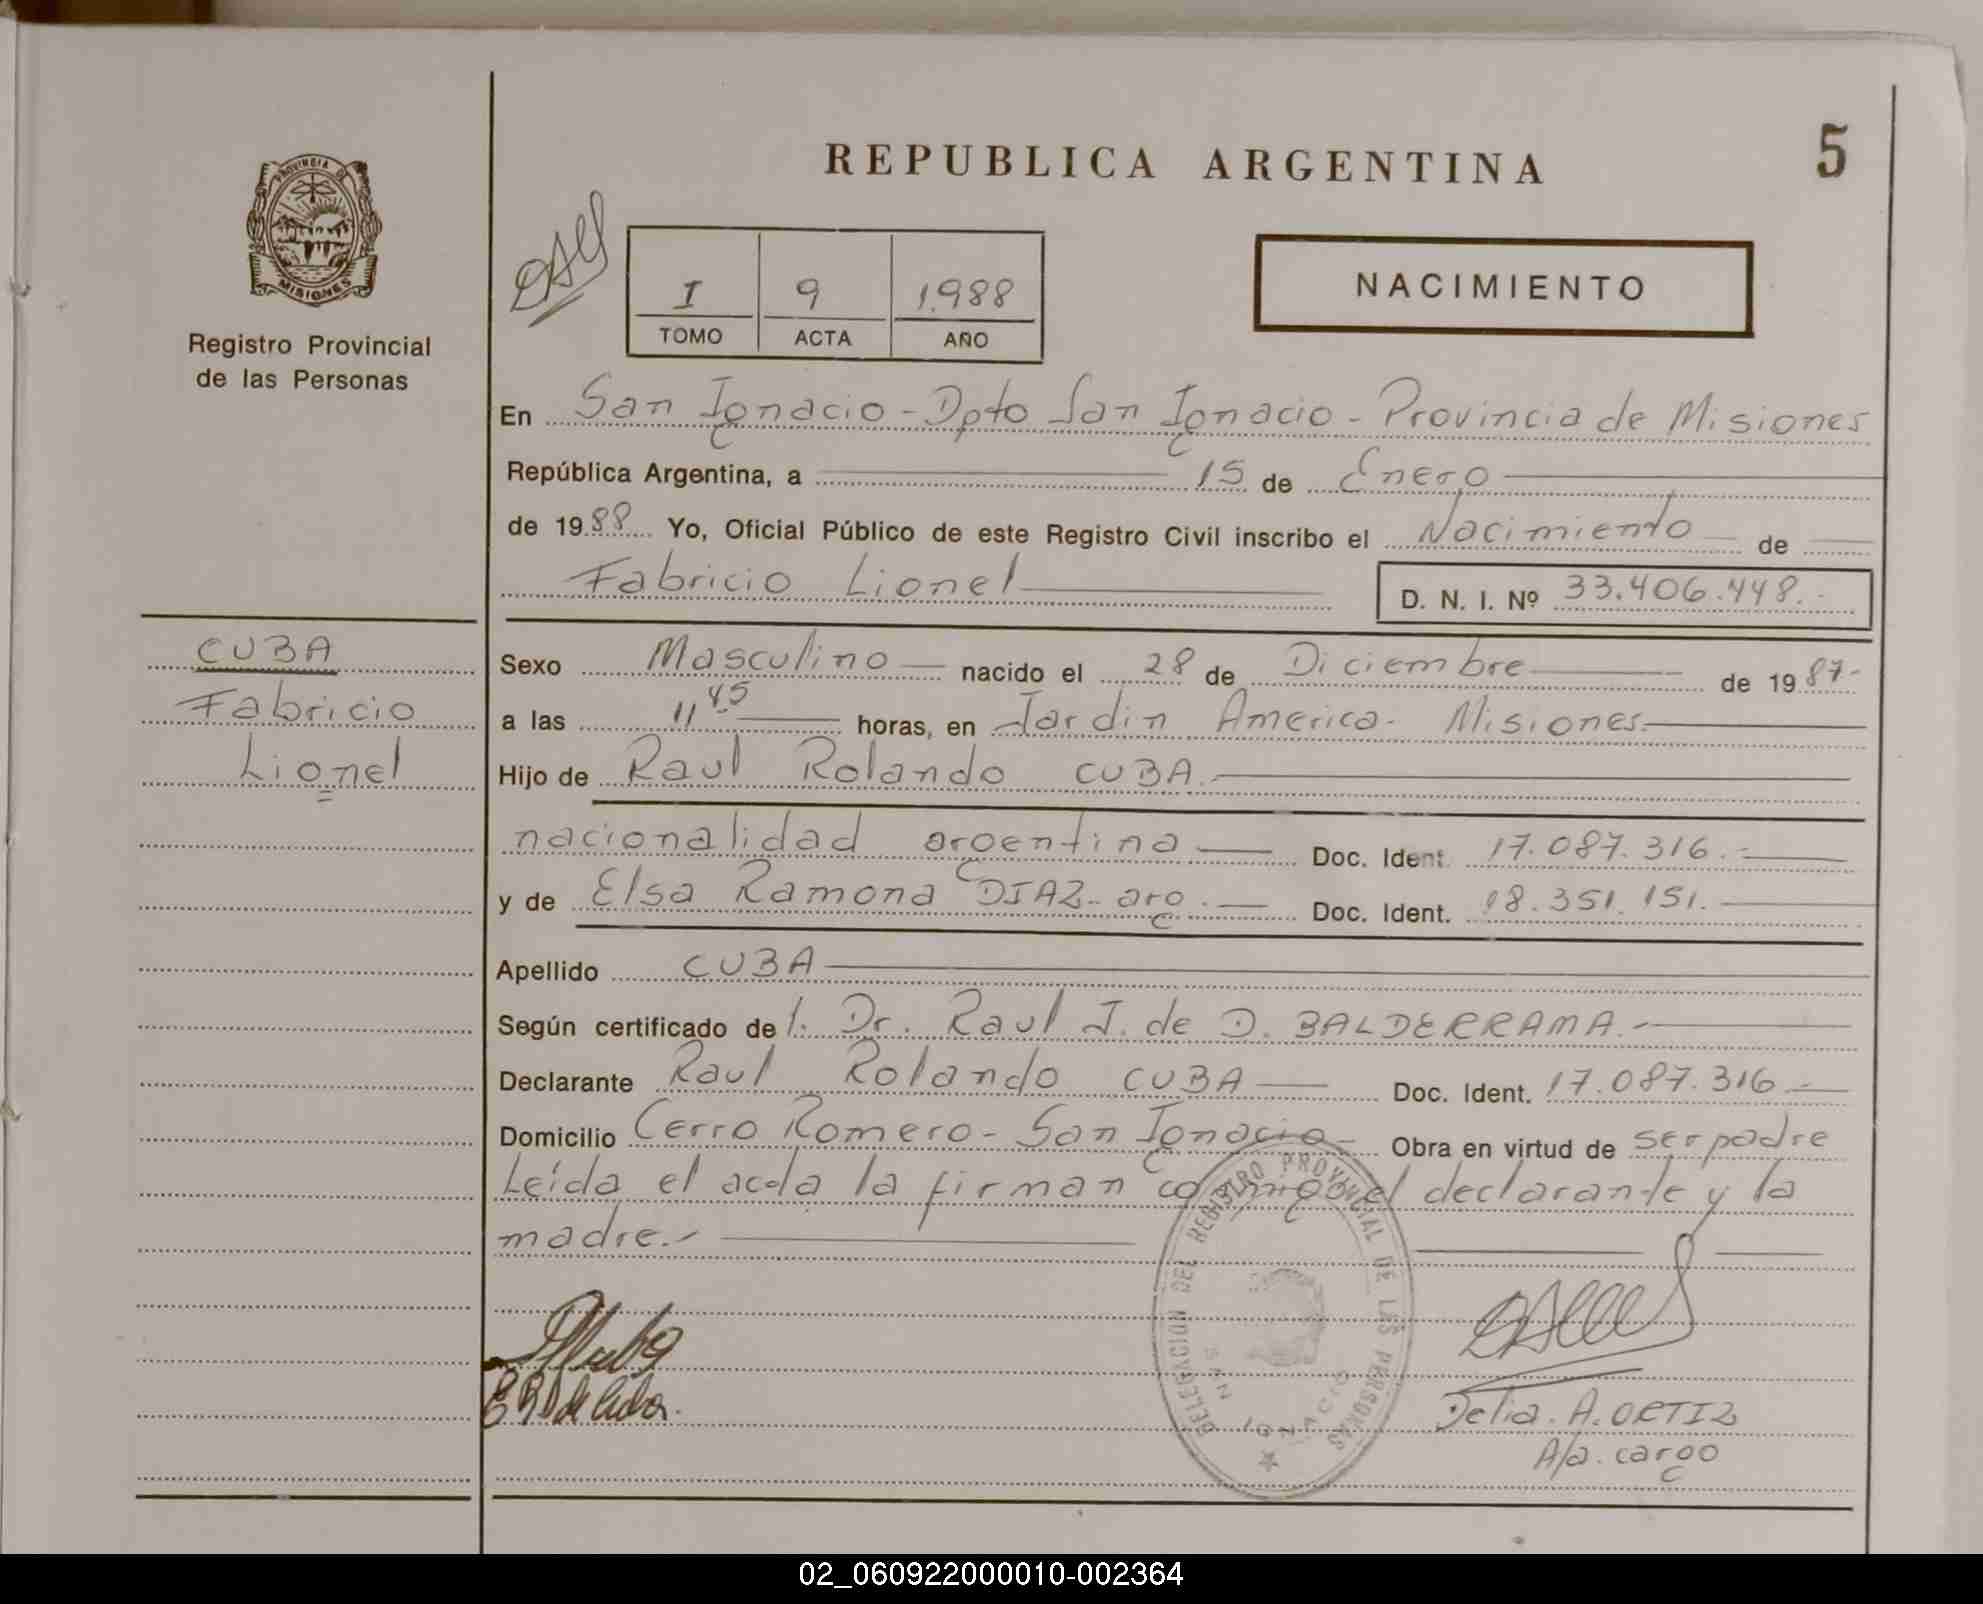 REPUBLICA ARGENTINA
5
PROVINCIA DE
MISIONES
Registro Provincial
de las Personas
I 9 1.988
TOMO ACTA AÑO
NACIMIENTO
En San Ignacio - Dpto San Ignacio - Provincia de Misiones
República Argentina, a 15 de Enero
de 1988 Yo, Oficial Público de este Registro Civil inscribo el Nacimiento de
Fabricio Lionel
D. N. I. Nº 33.406.448.-
CUBA
Fabricio
Lionel
Sexo Masculino nacido el 28 de Diciembre de 1987-
a las 11 45 horas, en Jardin America - Misiones
Hijo de Raul Rolando CUBA.
nacionalidad argentina Doc. Ident. 17.087.316.-
y de Elsa Ramona DIAZ - arg. Doc. Ident. 18.351.151.
Apellido CUBA
Según certificado de l. Dr. Raul J. de D. BALDERRAMA.-
Declarante Raul Rolando CUBA Doc. Ident. 17.087.316.-
Domicilio Cerro Romero - San Ignacio - Obra en virtud de ser padre
Leída el acta la firman conmigo el declarante y la
madre.-
DELEGACION DEL REGISTRO PROVINCIAL DE LAS PERSONAS
SAN IGNACIO
Delia. A. ORTIZ
A/a. cargo
02_060922000010-002364